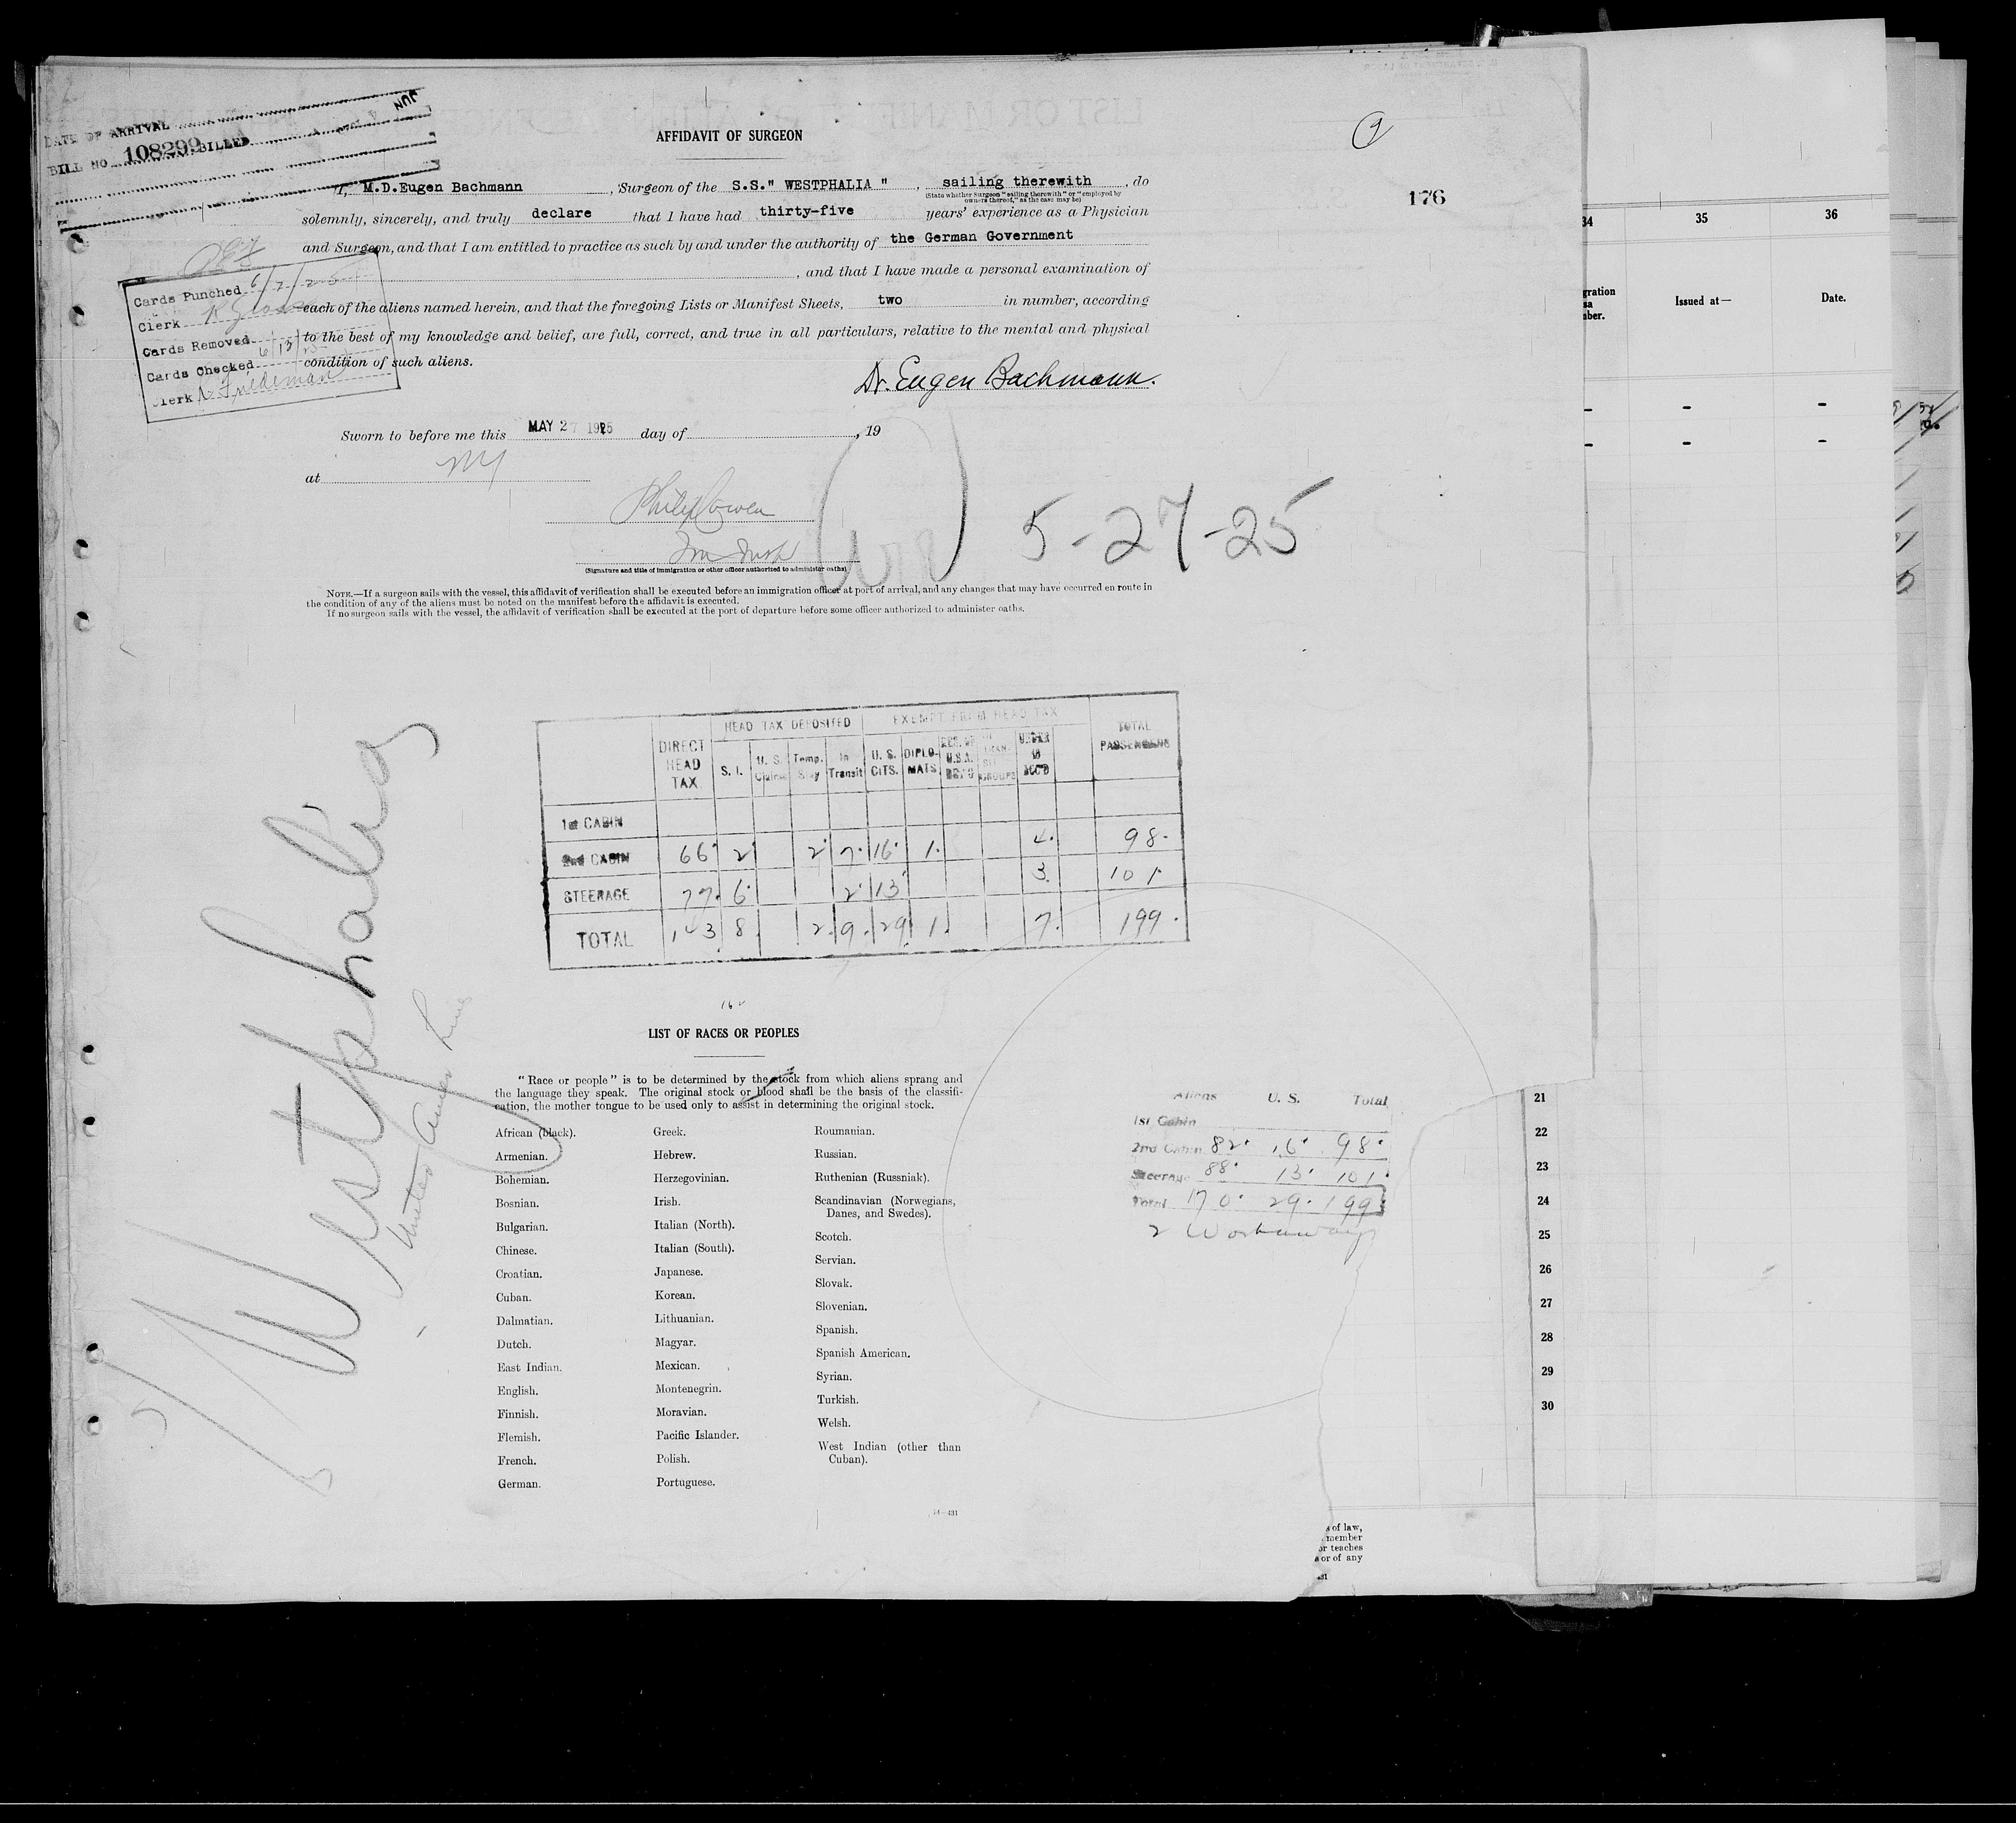 DATE OF ARRIVAL JUN
BILL NO. 108299 BILLED
AFFIDAVIT OF SURGEON
176
I, M.D.Eugen Bachmann, Surgeon of the S.S." WESTPHALIA ", sailing therewith, do
(State whether Surgeon "sailing therewith" or "employed by owners thereof," as the case may be)
solemnly, sincerely, and truly declare that I have had thirty-five years' experience as a Physician
and Surgeon, and that I am entitled to practice as such by and under the authority of the German Government
, and that I have made a personal examination of
each of the aliens named herein, and that the foregoing Lists or Manifest Sheets, two in number, according
to the best of my knowledge and belief, are full, correct, and true in all particulars, relative to the mental and physical
condition of such aliens.
Cards Punched 6/2/25
Clerk
Cards Removed
Cards Checked 6/13/25
Clerk Friedeman
Dr. Eugen Bachmann.
Sworn to before me this MAY 27 1925 day of , 19
at NY
Philip Cowen
Imm Insp
(Signature and title of immigration or other officer authorized to administer oaths)
5-27-25
NOTE.—If a surgeon sails with the vessel, this affidavit of verification shall be executed before an immigration officer at port of arrival, and any changes that may have occurred en route in
the condition of any of the aliens must be noted on the manifest before the affidavit is executed.
If no surgeon sails with the vessel, the affidavit of verification shall be executed at the port of departure before some officer authorized to administer oaths.
Westphalia
United Amer Lines
HEAD TAX DEPOSITED EXEMPT FROM HEAD TAX
DIRECT HEAD TAX S. I. U. S. Claims Temp. Stay In Transit U. S. CITS. DIPLO-MATS UNDER 16 ACC'D TOTAL PASSENGERS
1st CABIN
2nd CABIN 66 2 2 7 16 1 4 98
STEERAGE 77 6 2 13 3 101
TOTAL 143 8 2 9 29 1 7 199
LIST OF RACES OR PEOPLES
"Race or people" is to be determined by the stock from which aliens sprang and
the language they speak. The original stock or blood shall be the basis of the classifi-
cation, the mother tongue to be used only to assist in determining the original stock.
African (black).
Armenian.
Bohemian.
Bosnian.
Bulgarian.
Chinese.
Croatian.
Cuban.
Dalmatian.
Dutch.
East Indian.
English.
Finnish.
Flemish.
French.
German.
Greek.
Hebrew.
Herzegovinian.
Irish.
Italian (North).
Italian (South).
Japanese.
Korean.
Lithuanian.
Magyar.
Mexican.
Montenegrin.
Moravian.
Pacific Islander.
Polish.
Portuguese.
Roumanian.
Russian.
Ruthenian (Russniak).
Scandinavian (Norwegians,
Danes, and Swedes).
Scotch.
Servian.
Slovak.
Slovenian.
Spanish.
Spanish American.
Syrian.
Turkish.
Welsh.
West Indian (other than
Cuban).
14—431
Aliens U. S. Total
1st Cabin
2nd Cabin 82 16 98
Steerage 88 13 101
Total 170 29 199
2 Workaways
34 35 36
Issued at—
Date.
21
22
23
24
25
26
27
28
29
30
s of law,
member
or teaches
s or of any